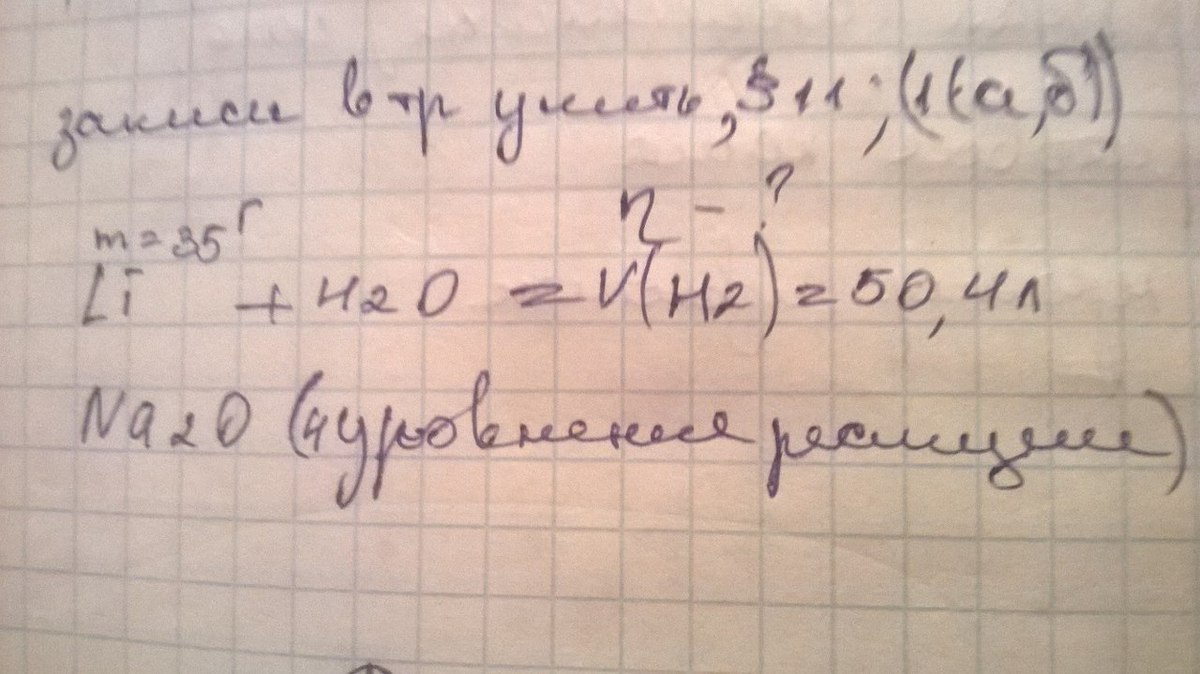 записи в тр учить, §11; (1(а,б))
η - ?
m = 35 г
Li + H2O = V(H2) = 50,4л
Na2O (4 уровнения реакции)